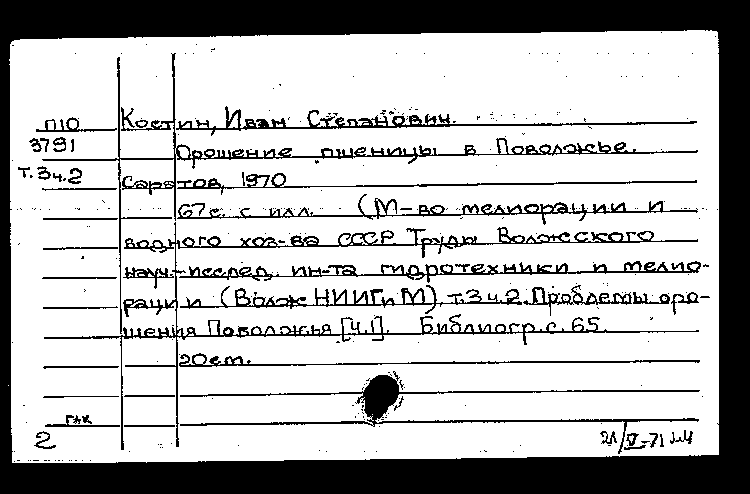 П10 Костин, Иван Степанович.
3791 Орошение пшеницы в Поволжье.
Т.3ч.2 Саратов, 1970
67с. с илл. (М-во мелиорации и
водного хоз-ва СССР Труды Волжского
науч.-исслед. ин-та гидротехники и мелио-
рации (ВолжНИИГиМ), т.3ч.2. Проблемы оро-
шения Поволжья [ч.1]. Библиогр. с. 65.
20см.
ГАК
2
V-71